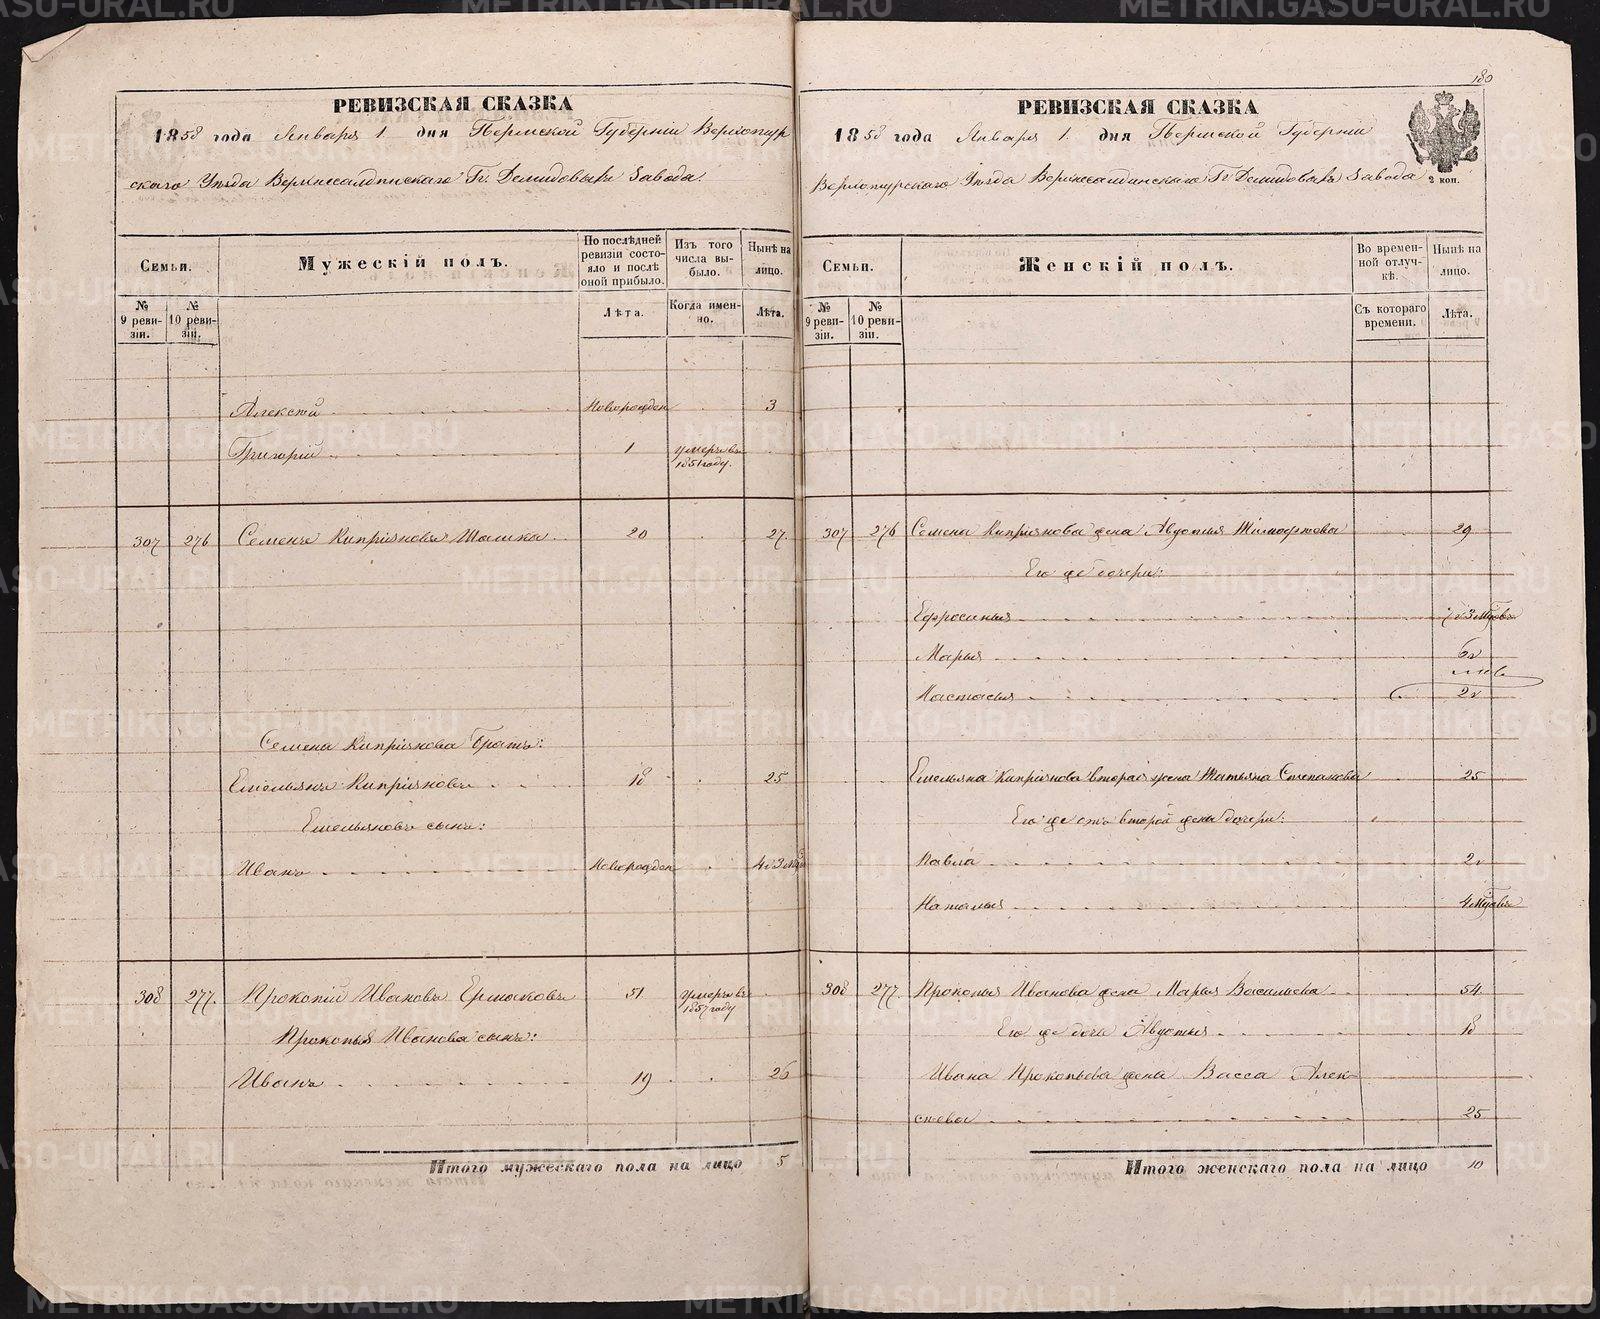 РЕВИЗСКАЯ СКАЗКА
1858 года Января 1 дня Пермской Губерніи Верхотур
скаго Уѣзда Верхнесалдинскаго Гг. Демидовыхъ Завода
Семьи.
Мужескій полъ.
По послѣдней ревизіи состояло и послѣ оной прибыло.
Изъ того числа выбыло.
Нынѣ на лицо.
№ 9 ревизіи.
№ 10 ревизіи.
Лѣта.
Когда именно.
Лѣта.
Алексѣй Новорожден 3
Григорій 1 умеръ въ 1851 году.
307 276 Семенъ Кипріяновъ 20 27.
Семена Кипріянова Братъ:
Емельянъ Кипріяновъ 18 25
Емельяновъ сынъ:
Иванъ Новорожден
308 277. Прокопій Ивановъ Ермаковъ 51 умеръ въ 1857 году
Прокопья Иванова сынъ:
Иванъ 19 26
Итого мужескаго пола на лицо 5
180
РЕВИЗСКАЯ СКАЗКА
1858 года Января 1 дня Пермской Губерніи
Верхотурскаго Уѣзда Верхнесалдинскаго Гг Демидовыхъ Завода
2 коп.
Семьи.
Женскій полъ.
Во временной отлучкѣ.
Нынѣ на лицо.
№ 9 ревизіи.
№ 10 ревизіи.
Съ котораго времени.
Лѣта.
307 276 Семена Кипріянова жена Авдотья Тимофѣева 29
Его же дочери:
Ефросинья
Марья 6
Настасья 2
Емельяна Кипріянова вторая жена Татьяна Степанова 25
Его же отъ второй жены дочери:
Павла 2
Наталья 4
308 277. Прокопья Иванова жена Марья Васильева 54
Его же дочь Авдотья 18
Ивана Прокопьева жена Васса Алек
сѣева 25
Итого женскаго пола на лицо 10
METRIKI.GASO-URAL.RU